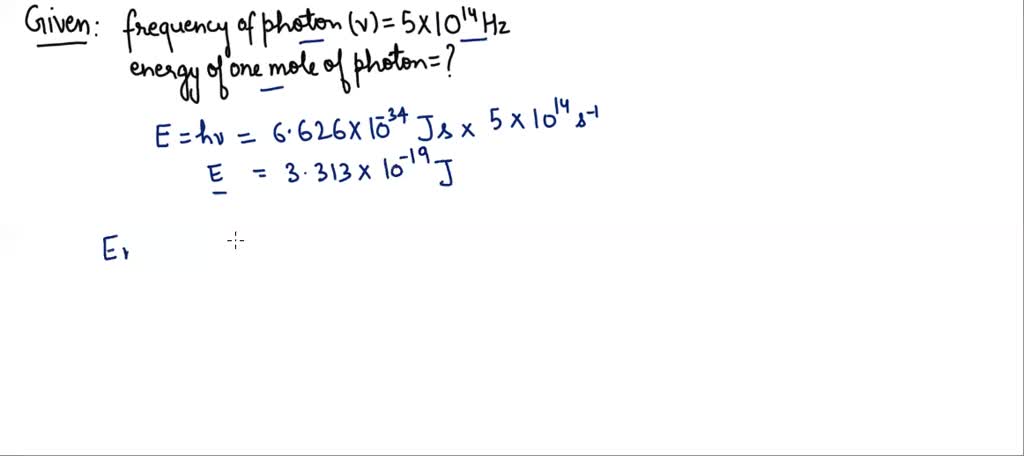 Given: frequency of photon (ν) = 5×10¹⁴ Hz
energy of one mole of photon = ?
E = hν = 6.626 × 10⁻³⁴ Js × 5 × 10¹⁴ s⁻¹
E = 3.313 × 10⁻¹⁹ J